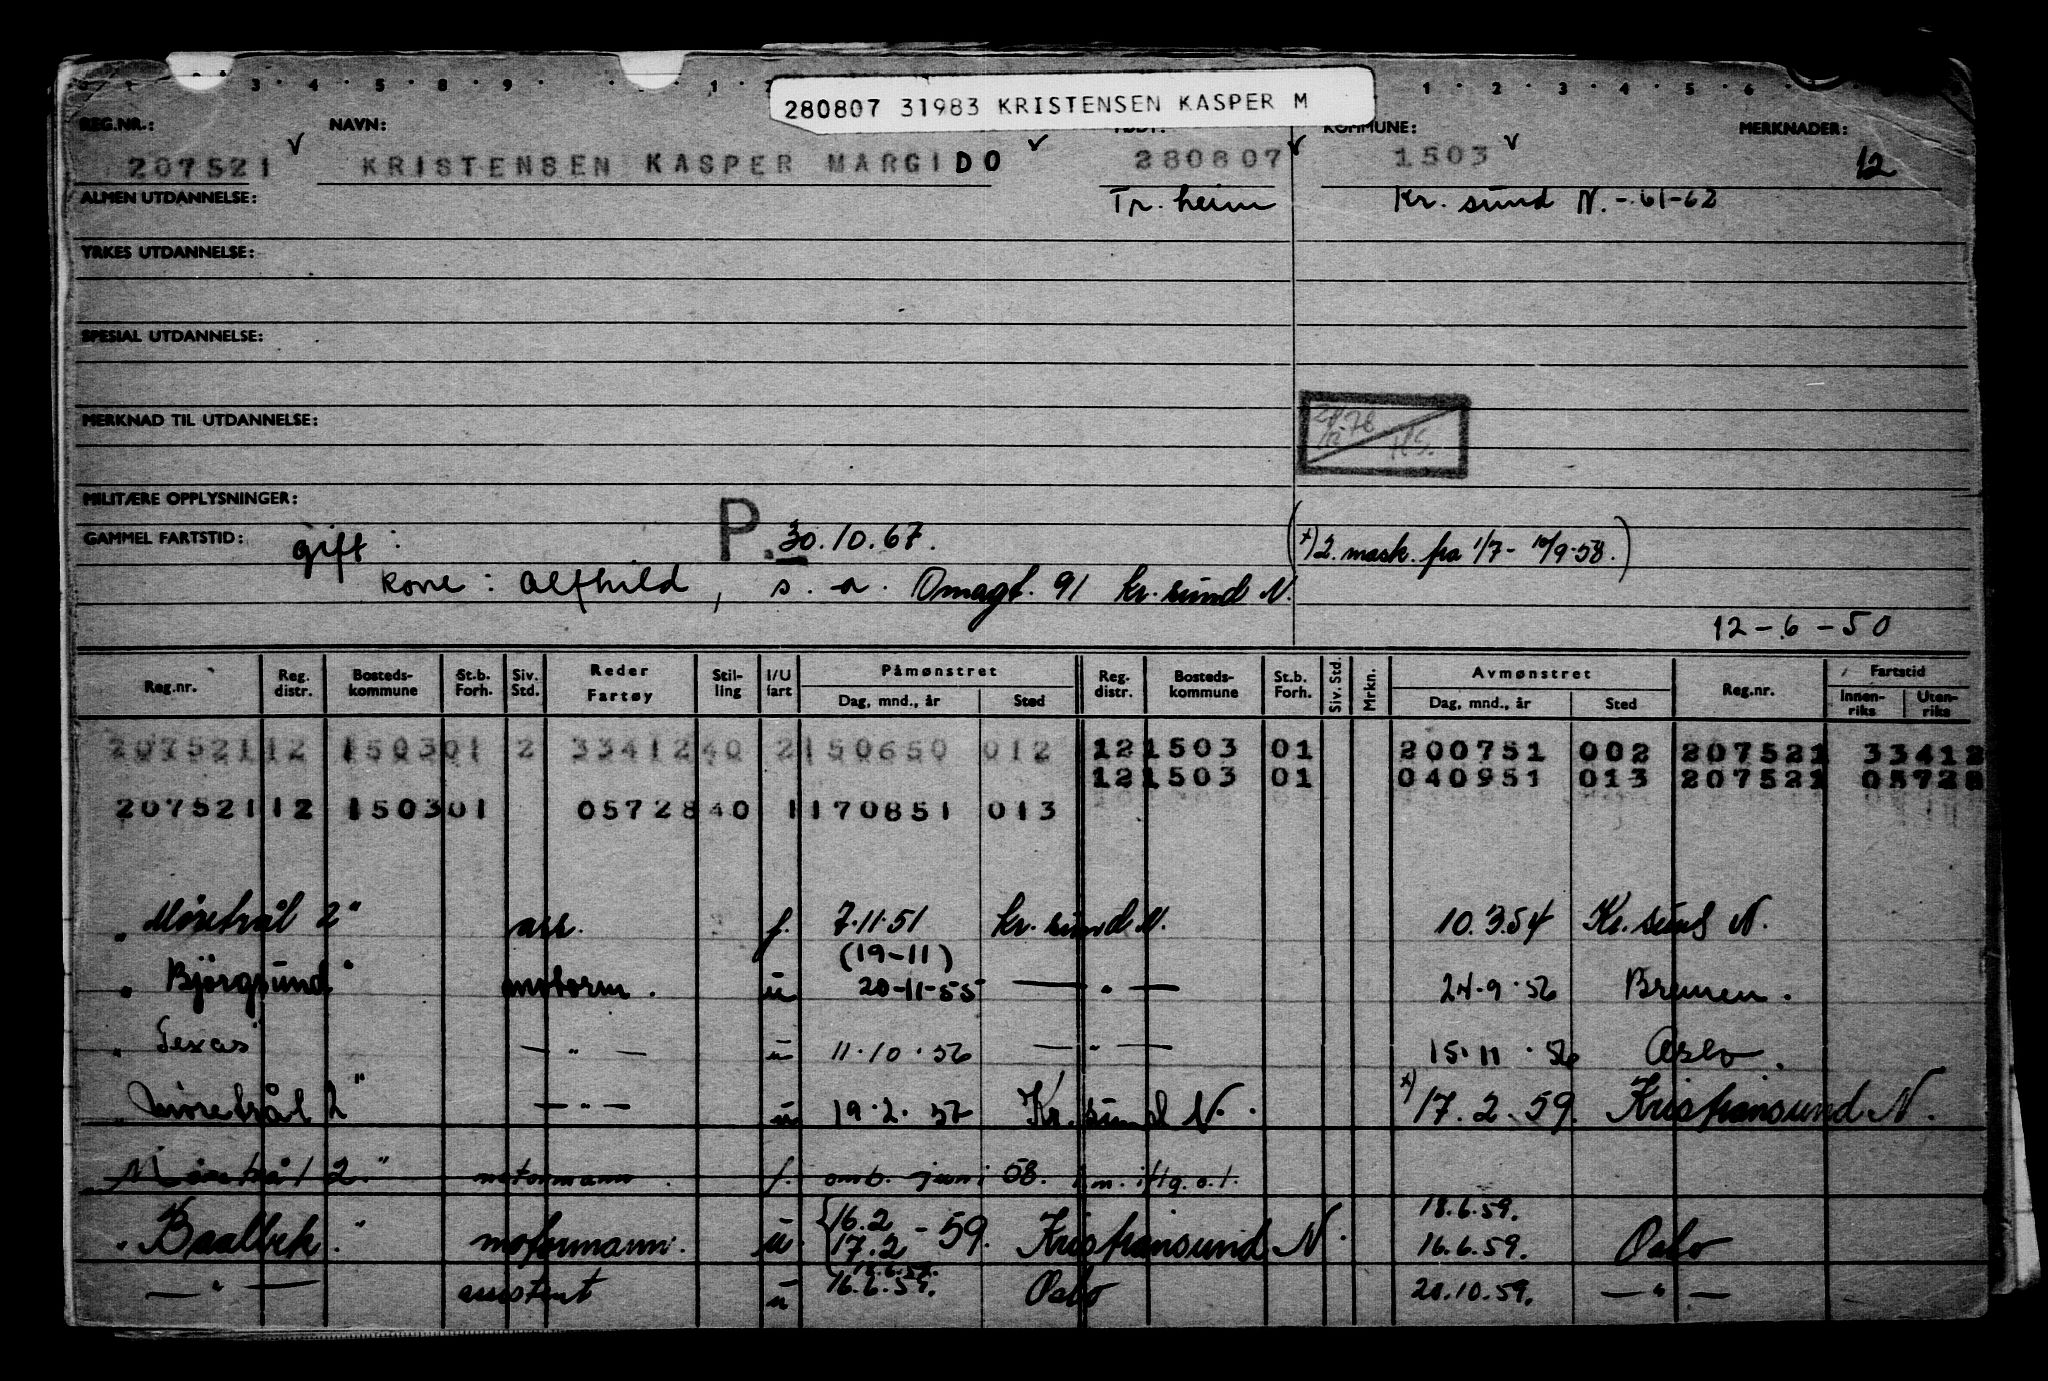 280807 31983 KRISTENSEN KASPER M
REG.NR.: NAVN: KOMMUNE: MERKNADER:
207521 KRISTENSEN KASPER MARGIDO 280807 1503 12
ALMEN UTDANNELSE: Tr.heim Kr.sund N.-61-62
YRKES UTDANNELSE:
SPESIAL UTDANNELSE:
MERKNAD TIL UTDANNELSE:
MILITÆRE OPPLYSNINGER:
GAMMEL FARTSTID: gift: P. 30.10.67. (x) 2. mask. fra 1/7 - 10/9-58.)
kone: Alfhild, s. a. Omagt. 91 Kr.sund N.
12-6-50
Reg.nr. Reg. distr. Bosteds-kommune St.b. Forh. Siv. Std. Reder Fartøy Stil-ling I/U fart Påmønstret Dag, mnd., år Sted Reg. distr. Bosteds-kommune St.b. Forh. Siv. Std. Mrkn. Avmønstret Dag, mnd., år Sted Reg.nr. Fartstid Innen-riks Uten-riks
207521 12 1503 01 2 33412 40 2 150650 012 12 1503 01 200751 002 207521 33412
12 1503 01 040951 013 207521 05728
207521 12 1503 01 05728 40 1 170851 013
"Møretrål 2" ass. f. 7.11.51 Kr.sund N. 10.3.54 Kr.sund N.
(19-11)
"Bjørgsund" motorm. u 20-11-55 — " — 24.9.56 Bremen.
"Texas — " — u 11.10.56 — " — 15.11.56 Oslo.
"Møretrål 2" — " — u 19.2.57 Kr.sund N. x) 17.2.59. Kristiansund N.
"Møretrål 2." motormann f. omb. juni 58.
"Baalbek." motormann. u. {16.2 17.2 - 59. Kristiansund N. 18.6.59. 16.6.59. Oslo
— " — assistent u 16.6.59. Oslo 20.10.59. — " —